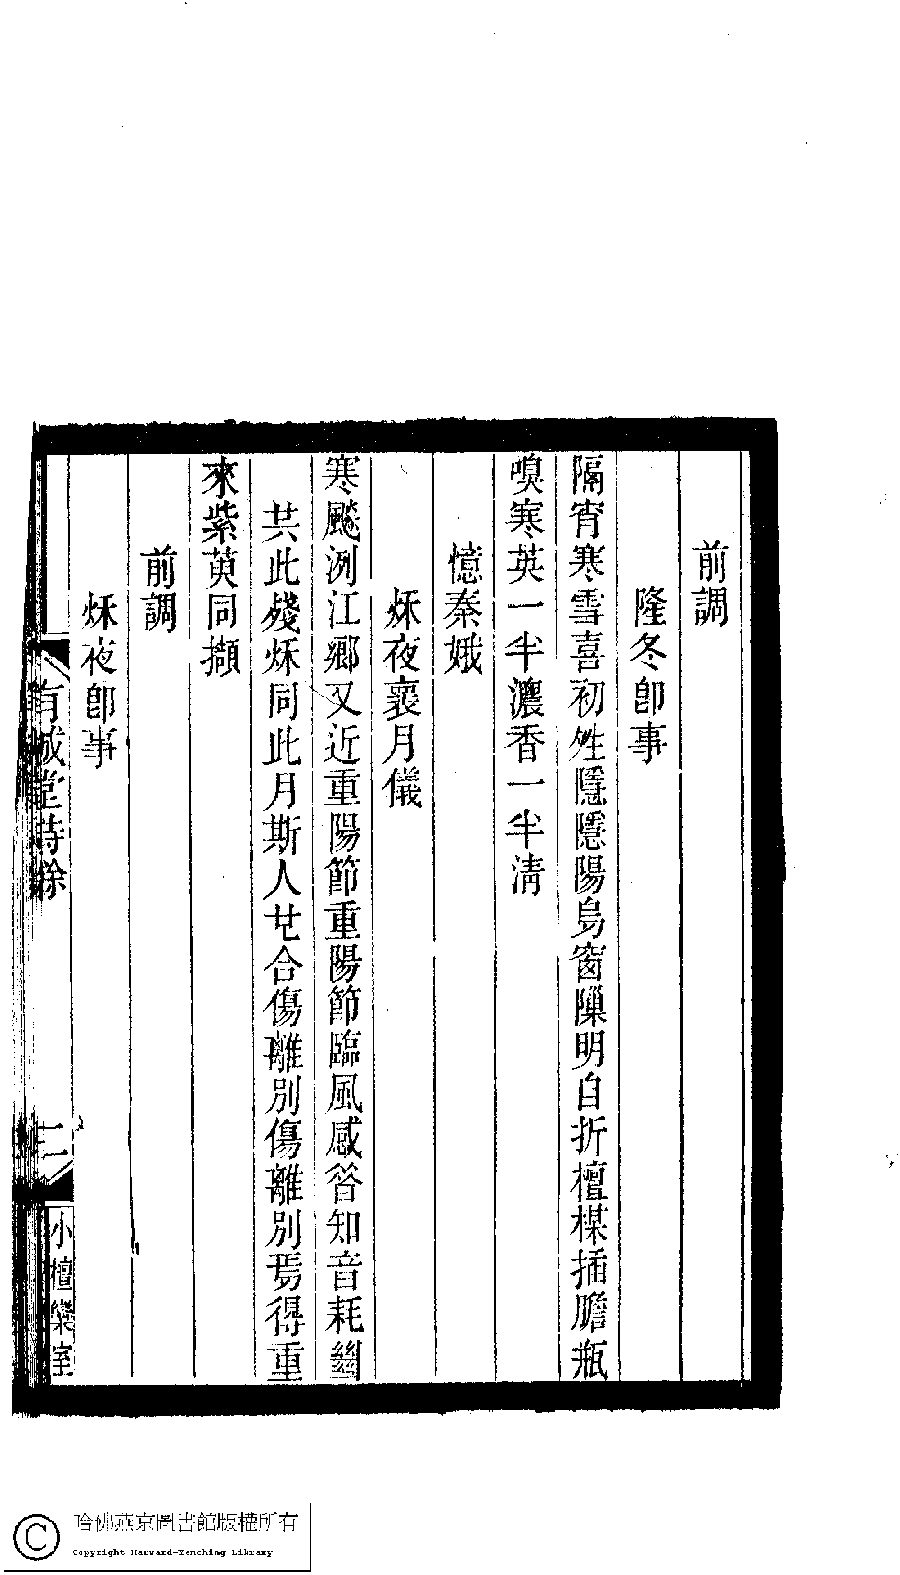 前調
隆冬卽事
隔宵寒雪喜初夝隱隱陽烏窗隟明自折檀楳插膽瓶
嗅寒英一半濃香一半淸
憶秦娥
秌夜褱月儀
寒飈洌江鄉又近重陽節重陽節臨風感咎知音耗𢇍
共此殘秌同此月斯人合傷離別傷離別焉得重
來紫萸同擷
前調
秌夜卽事
有誠堂詩餘
三
小檀欒室
哈佛燕京圖書館版權所有
Copyright Harvard-Yenching Library